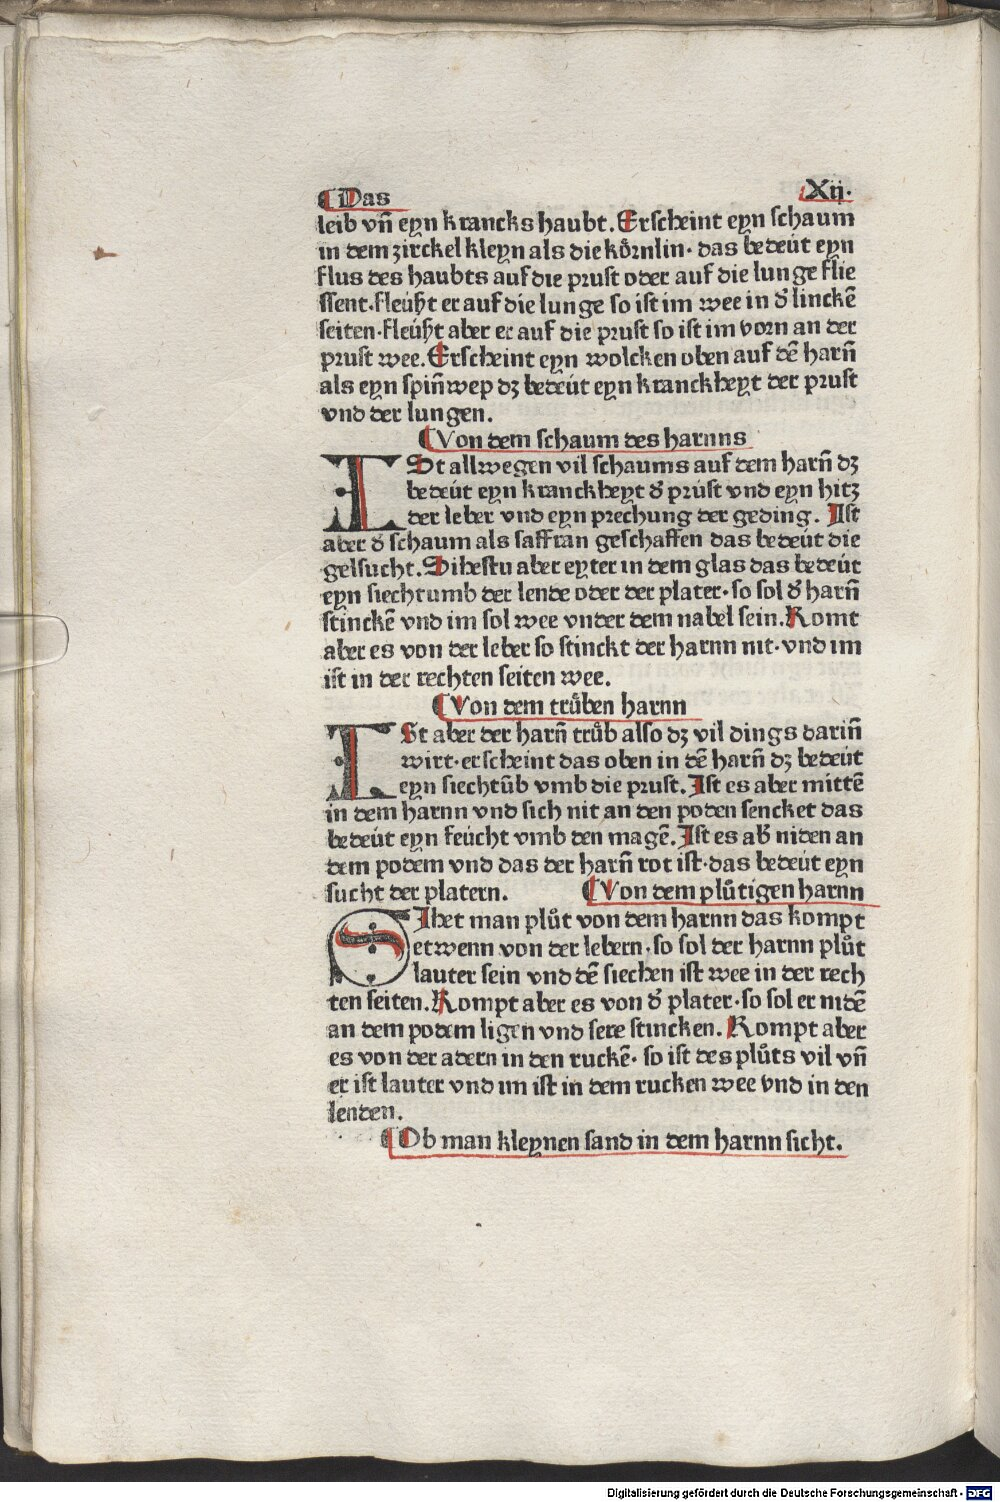 ⸿Das Xij.
leib vñ eyn krancks haubt. Erscheint eyn schaum
in dem zirckel kleyn als die koͤrnlin· das bedeút eyn
flus des haubts auf die prust oder auf die lunge flie
ssent·fleúßt er auf die lunge so ist im wee in dˀ linckē
seiten·fleúßt aber er auf die prust so ist im vorn an der
prust wee. Erscheint eyn wolcken oben auf dē harñ
als eyn spiñwep dz bedeút eyn kranckheyt der prust
vnd der lungen.
⸿Von dem schaum des harnns
ISt allwegen vil schaums auf dem harñ dz
bedeút eyn kranckheyt dˀ prúst vnd eyn hitz
der leber vnd eyn prechung der geding. Ist
aber dˀ schaum als saffran geschaffen das bedeút die
gelsucht. Sihestu aber eyter in dem glas das bedeút
eyn siechtumb der lende oder der plater·so sol dˀ harñ
stinckē vnd im sol wee vnder dem nabel sein. Komt
aber es von der leber so stinckt der harnn nit·vnd im
ist in der rechten seiten wee.
⸿Von dem truͤben harnn
ISt aber der harñ truͤb also dz vil dings dariñ
wirt·erscheint das oben in dē harñ dz bedeút
eyn siechtūb vmb die prust. Ist es aber mittē
in dem harnn vnd sich nit an den poden sencket das
bedeút eyn feúcht vmb den magē. Ist es abˀ niden an
dem podem vnd das der harñ rot ist·das bedeút eyn
sucht der platern. ⸿Von dem pluͦtigen harnn
SIhet man pluͦt von dem harnn das kompt
etwenn von der lebern·so sol der harnn pluͦt
lauter sein vnd dē siechen ist wee in der rech
ten seiten. Kompt aber es von dˀ plater·so sol er nidē
an dem podem ligen vnd sere stincken. Kompt aber
es von der adern in den ruckē· so ist des pluͦts vil vñ
er ist lauter vnd im ist in dem rucken wee vnd in den
lenden.
⸿Ob man kleynen sand in dem harnn sicht.
Digitalisierung gefördert durch die Deutsche Forschungsgemeinschaft - DFG